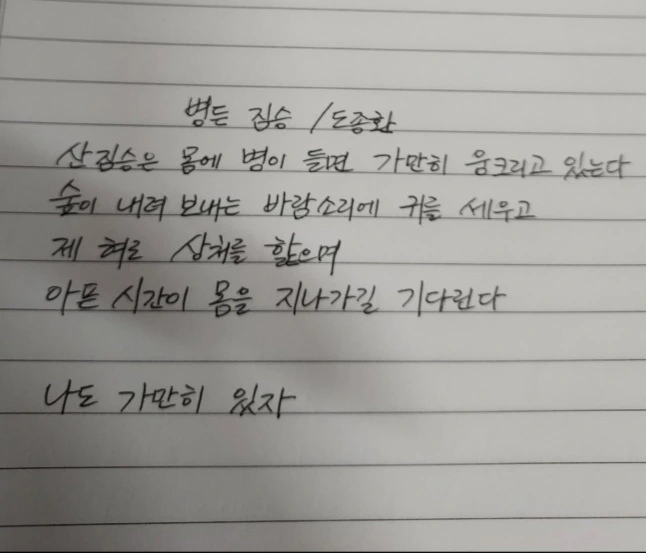 병든 짐승 / 도종환
산짐승은 몸에 병이 들면 가만히 웅크리고 있는다
숲이 내려 보내는 바람소리에 귀를 세우고
제 혀로 상처를 핥으며
아픈 시간이 몸을 지나가길 기다린다
나도 가만히 있자